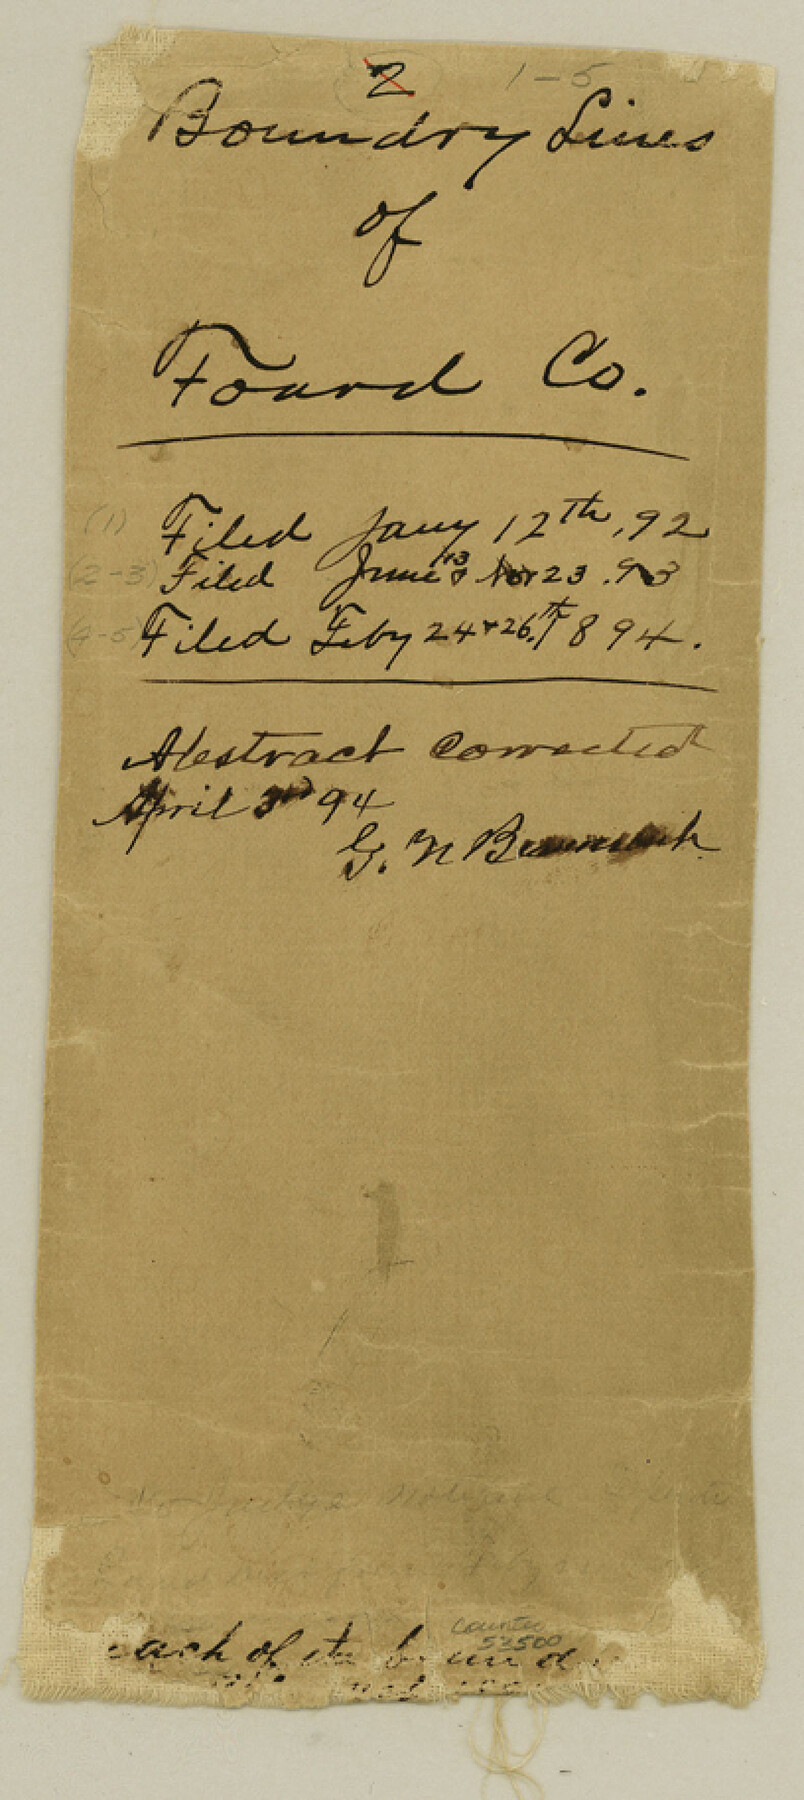 2 1-5
Boundry Lines
of
Foard Co.
(1) Filed Jany 12th, 92
(2-3) Filed June 13 & Nov 23. 93
(4-5) Filed Feby 24 & 26th, 1894.
Abstract Corrected
April 3rd 94
G. N
Counter
53500
each of its bound